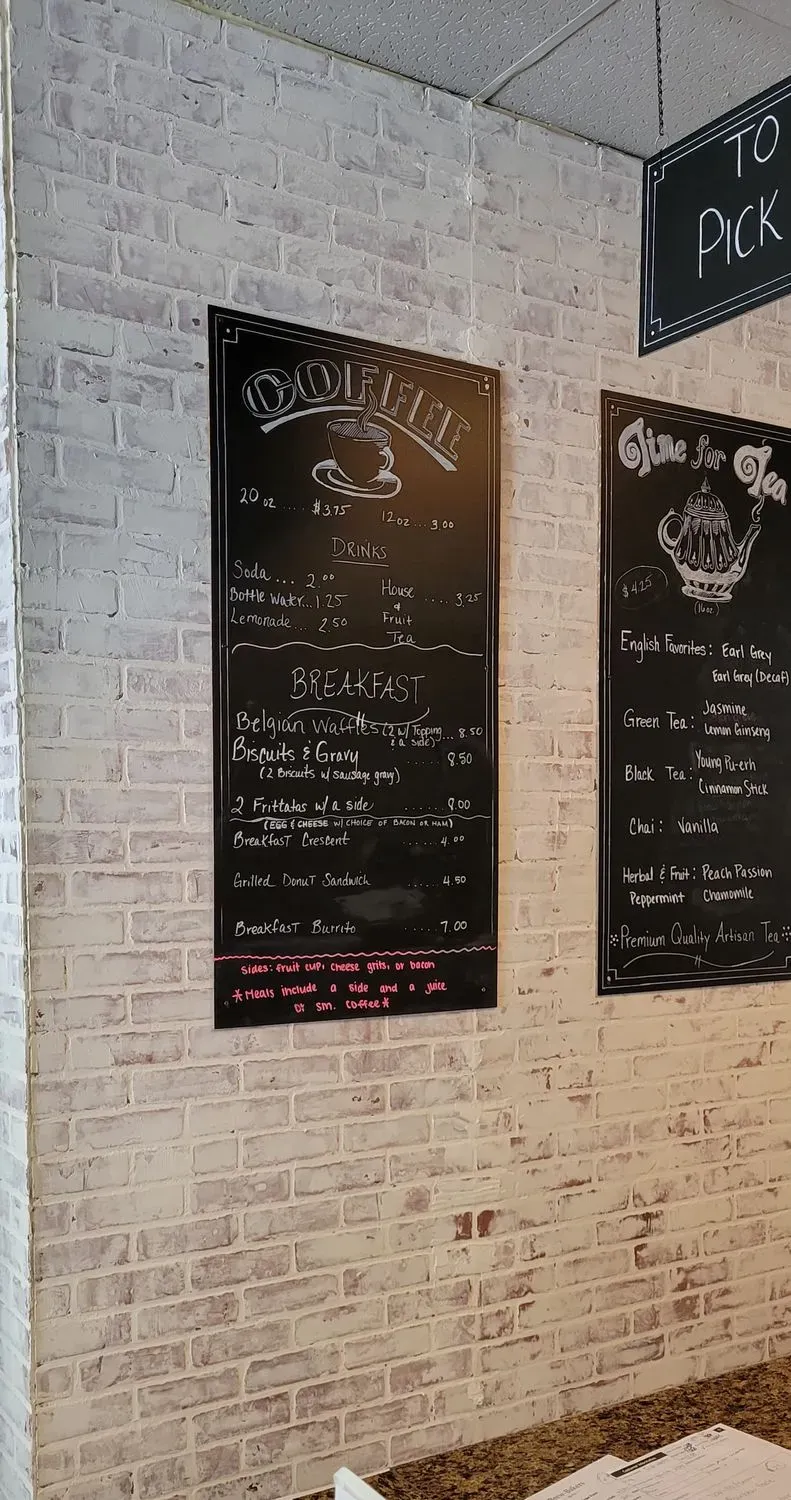 TO
PICK
COFFEE
20 oz .... $3.75 12 oz ... 3.00
DRINKS
Soda ... 2.00
Bottle Water... 1.25
Lemonade... 2.50
House & Fruit Tea .... 3.25
BREAKFAST
Belgian Waffles (2 w/ Topping & a side) ... 8.50
Biscuits & Gravy ..... 8.50
(2 Biscuits w/ sausage gravy)
2 Frittatas w/ a side ...... 8.00
(EGG & CHEESE W/ CHOICE OF BACON OR HAM)
Breakfast Crescent ..... 4.00
Grilled Donut Sandwich ..... 4.50
Breakfast Burrito ..... 7.00
Sides: fruit cup, cheese grits, or bacon
*Meals include a side and a juice
or sm. coffee*
Time for Tea
$4.25
(16oz)
English Favorites: Earl Grey
Earl Grey (Decaf)
Green Tea: Jasmine
Lemon Ginseng
Black Tea: Young Pu-erh
Cinnamon Stick
Chai: Vanilla
Herbal & Fruit: Peach Passion
Peppermint Chamomile
Premium Quality Artisan Tea